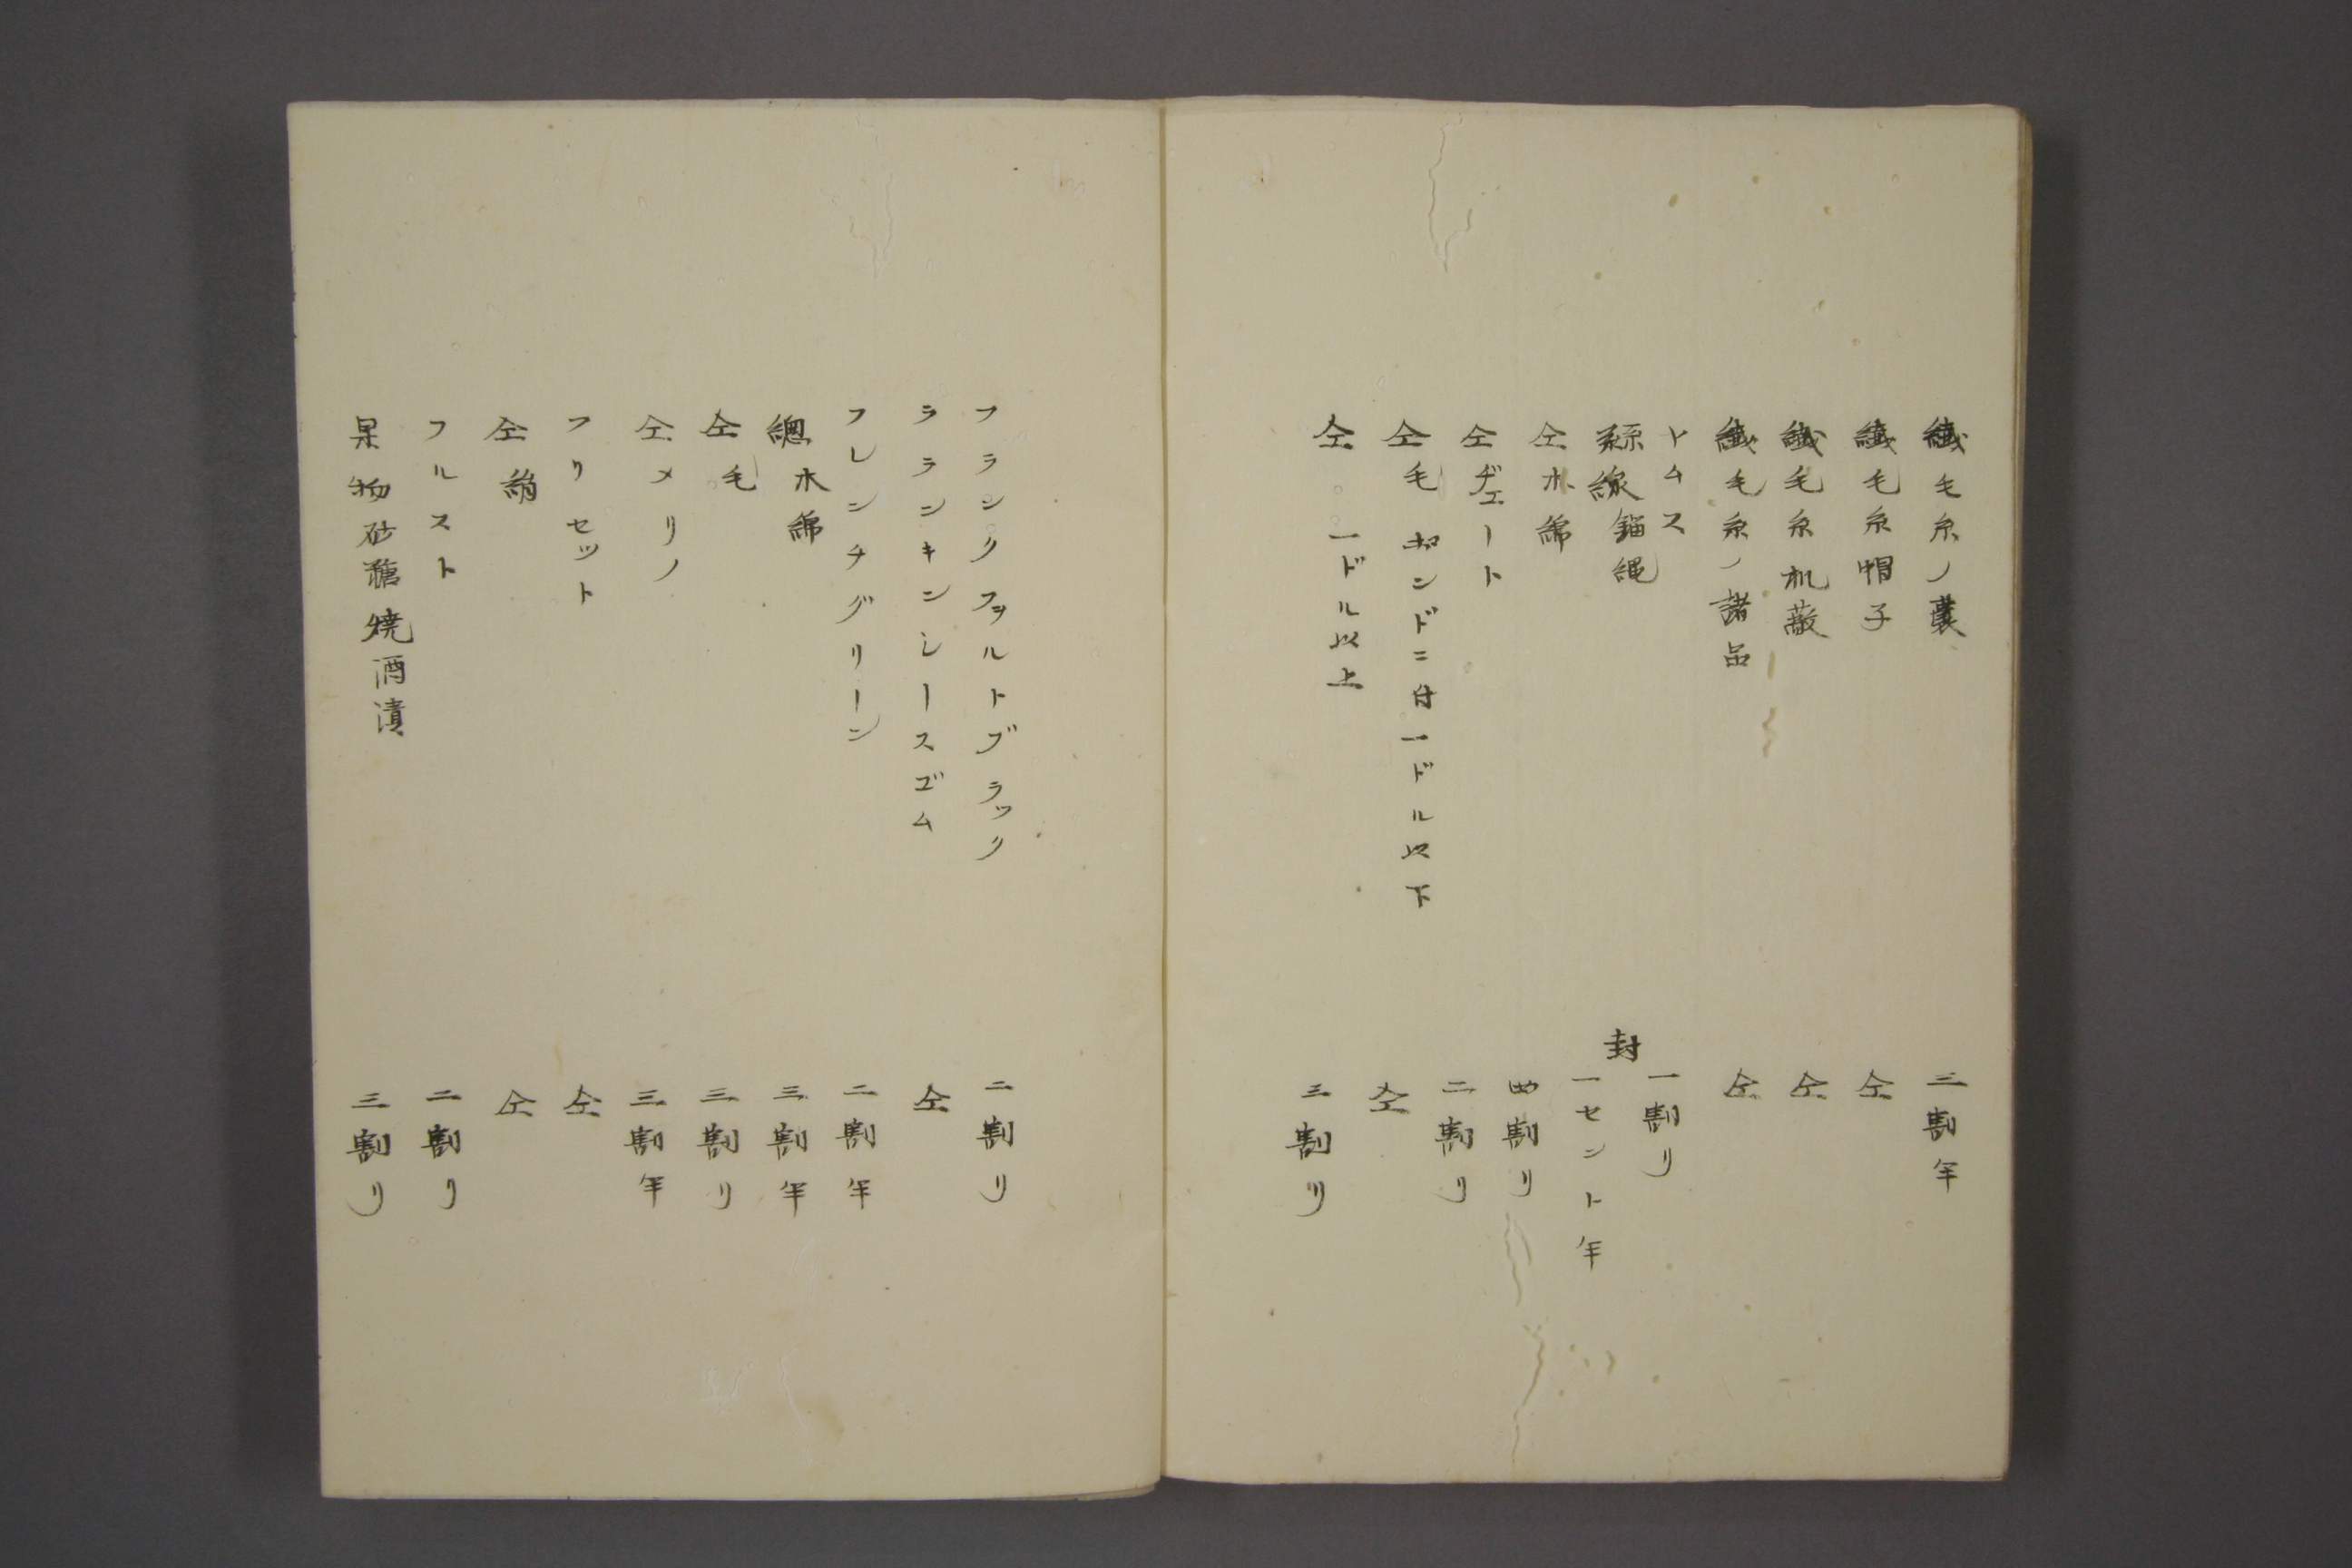 繊毛糸ノ嚢　三割半
繊毛糸帽子　仝
繊毛糸机蔽　仝
繊毛糸ノ諸品　仝
トムス　一割リ
線錨縄　封一セント半
仝木綿　四割リ
仝ヂエート　二割リ
仝毛　ポンドニ付一ドル以下　仝
仝　一ドル以上　三割リ
フランクフヲルトブラック　二割リ
フランキンシースゴム　仝
フレンチグリーン　二割半
總木綿　三割半
仝毛　三割リ
仝メリノ　三割半
フリセット　仝
仝絹　仝
フルスト　二割リ
果物砂糖焼酒漬　三割リ